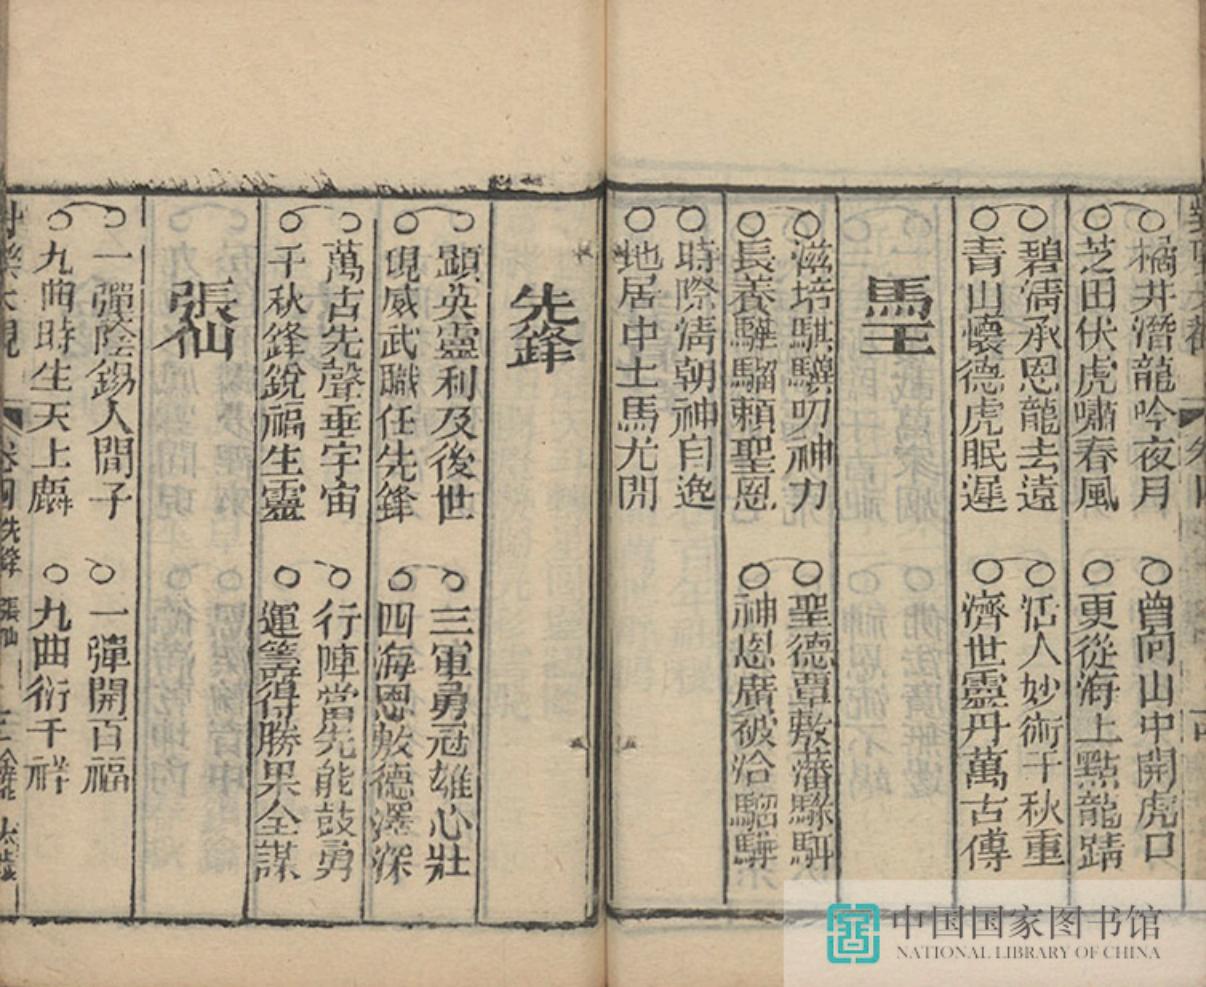 橘井潛龍吟夜月
芝田伏虎嘯春風
曾向山中開虎口
更從海上點龍睛
碧濤承恩龍去遠
青山懷德虎眠遲
活人妙術千秋重
濟世靈丹萬古傳
馬王
滋培騏驥叨神力
長養驊騮賴聖恩
聖德覃敷藩騄駬
神恩廣被洽騮驊
時際清朝神自逸
地居中土馬尤閒
先鋒
顯英靈利及後世
現威武職任先鋒
三軍勇冠雄心壯
四海恩敷德澤深
萬古先聲垂宇宙
千秋鋒銳福生靈
行陣當先能鼓勇
運籌得勝果全謀
張仙
一彈陰錫人間子
九曲時生天上麟
一彈開百福
九曲衍千祥
卷四先鋒 張仙
中国国家图书馆
NATIONAL LIBRARY OF CHINA